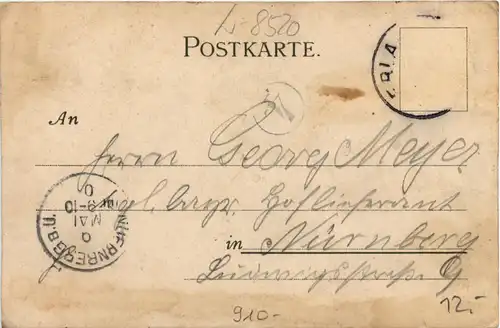 L 8520
POSTKARTE.
An
Herrn Georg Meyer
kgl. bayr. Hoflieferant
in Nürnberg
Ludwigsstraße
NUERNBERG B.U.
MAI
9-10
910.-
12.-